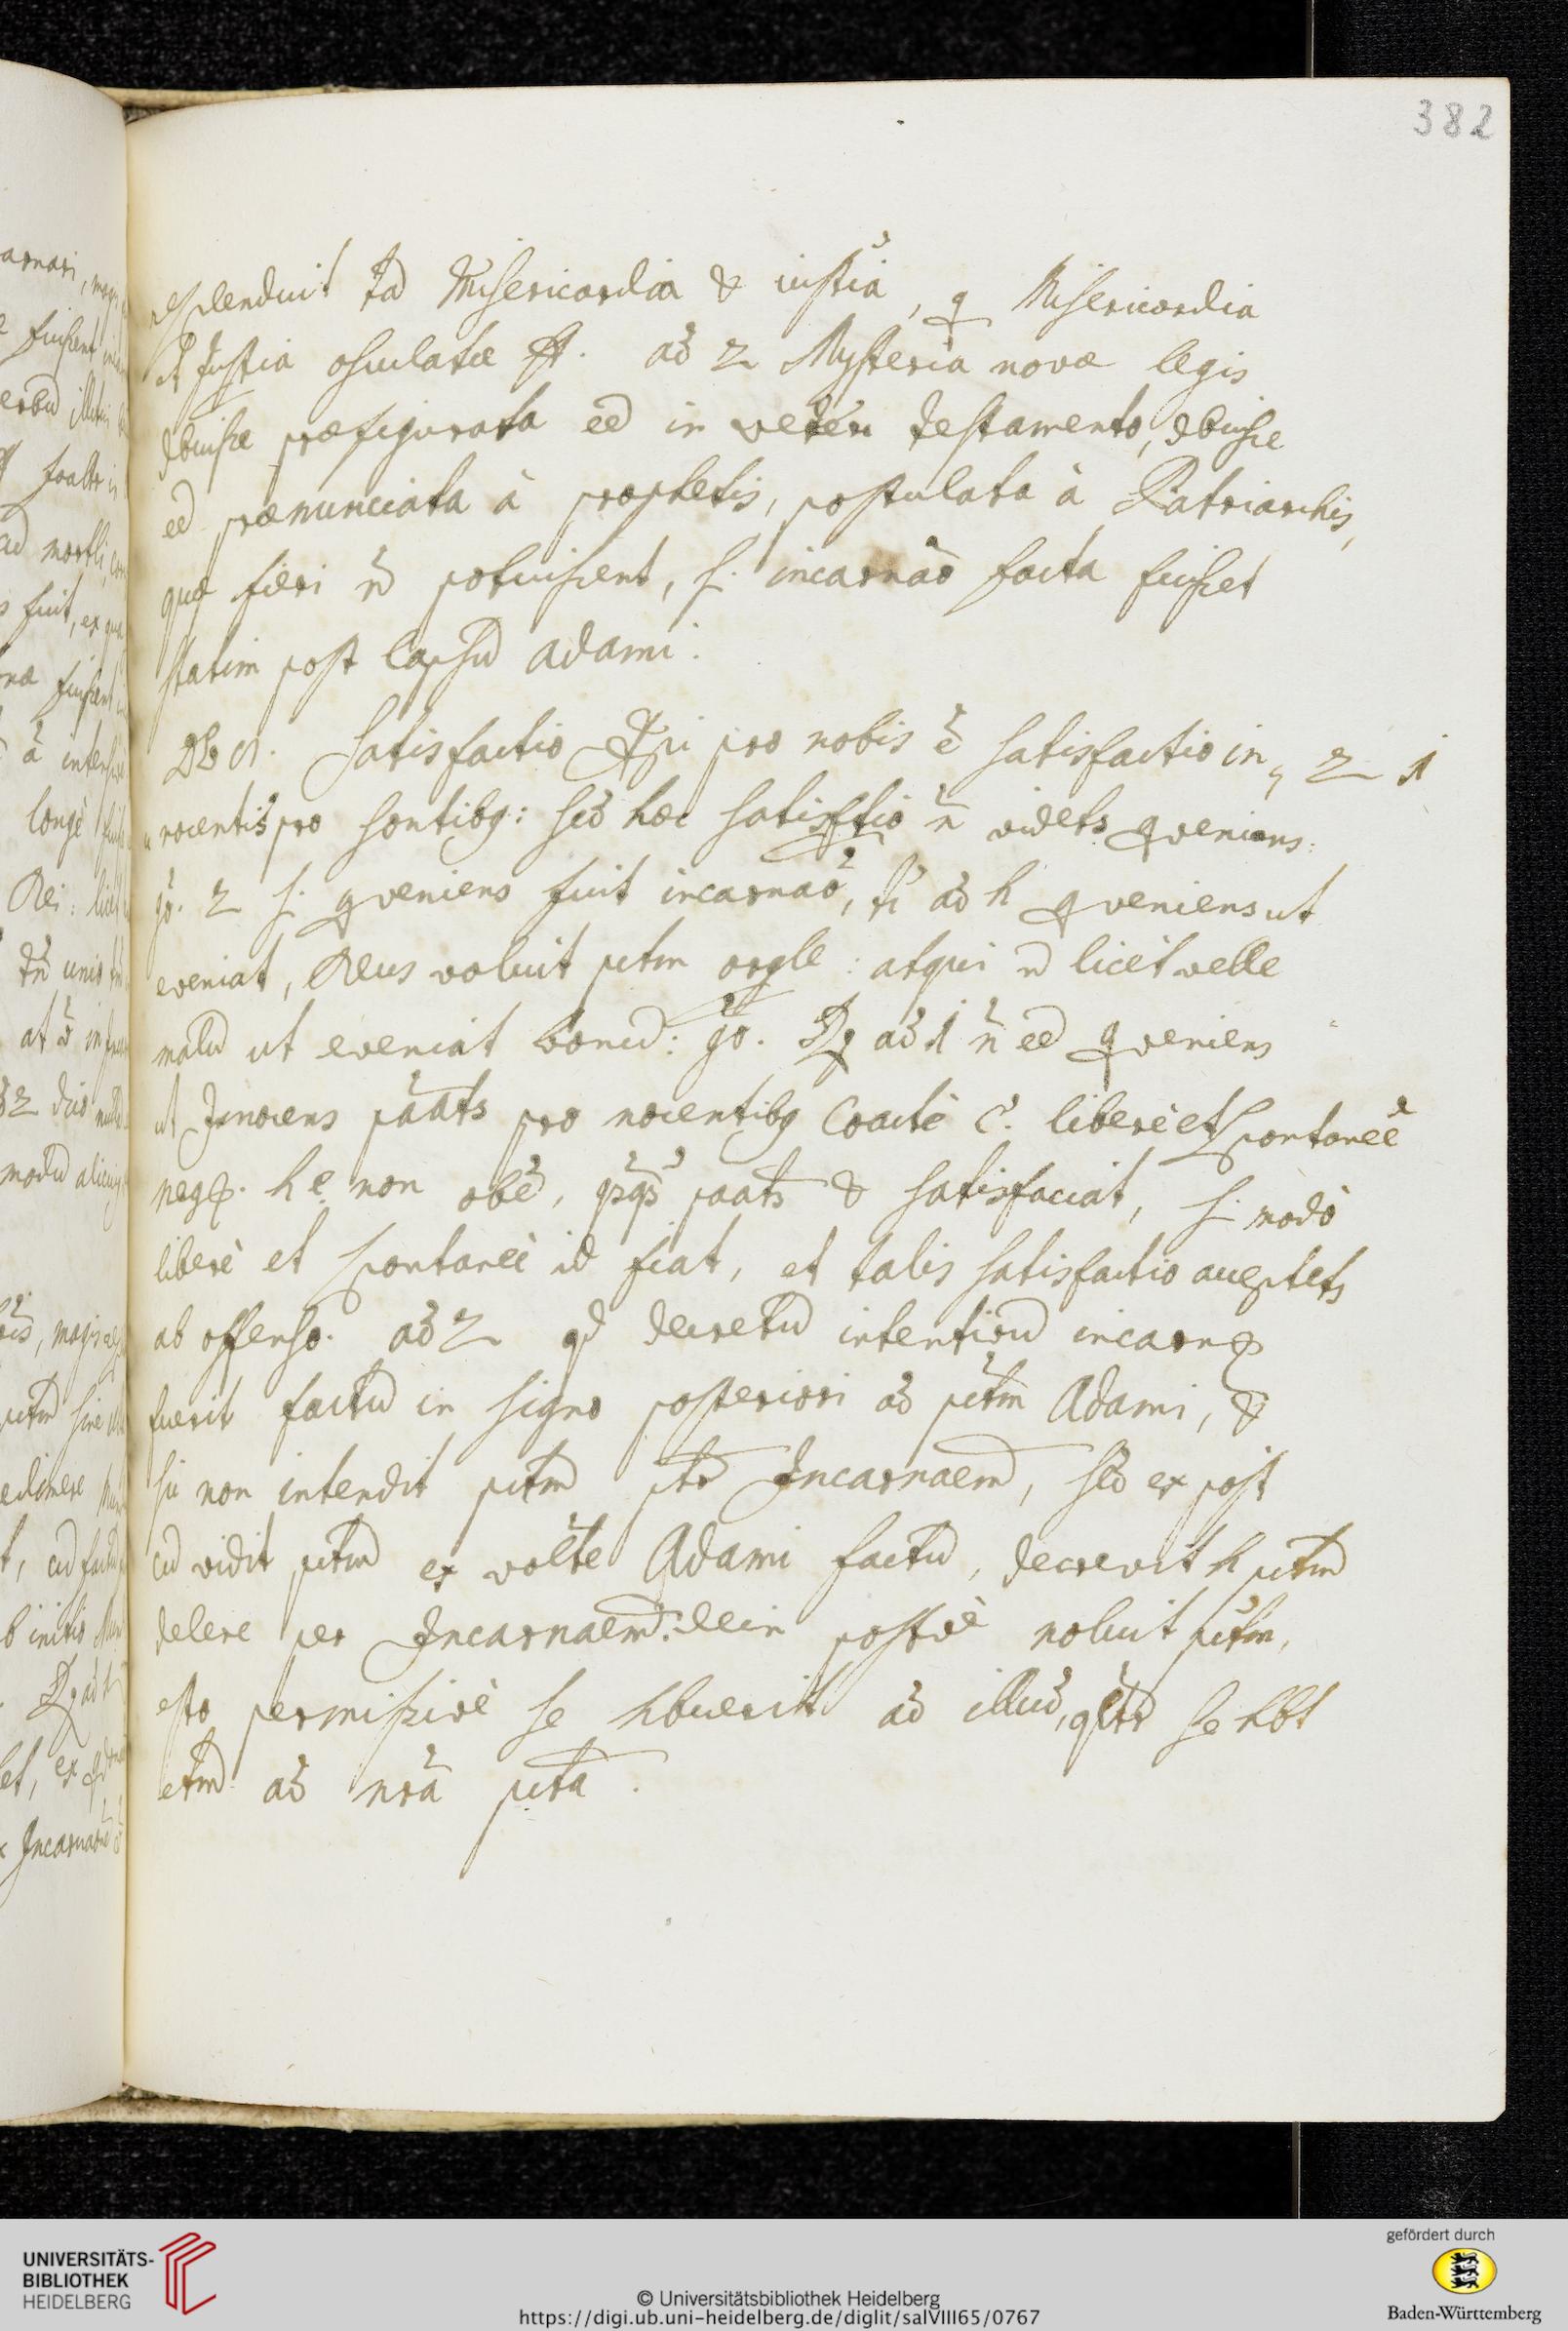 382
resplenduit tā Misericordia & iustia, q Misericordia
et Justia osculatæ st. ad 2 Mysteria novæ legis
dbuisse præfigurata eē in veteri testamento, dbuisse
eē prænunciata à prophetis, postulata à Patriarchis,
quæ fieri ñ potuissent, si incarnaō facta fuisset
statim post lapsū Adami.
Satisfactio Xpi pro nobis ē satisfactio in 2 1
nocentis pro sontibq: sed hæc satisftio ñ videtr qveniens:
gō. 2 si qveniens fuit incarnaō, ad h qveniens ut
eveniat, Deus voluit pctm orgle: atqui ñ licet velle
malū ut eveniat bonū: gō. Rx ad 1 ñ eē qveniens
ut Innocens paatr pro nocentibq Coactè C. liberè et spontaneè
neg. non obē, paatr & satisfaciat, si modò
liberè et spontaneè id fiat, et talis satisfactio acceptetr
ab offenso. ad 2 qd decretū intentivū incarn
fuerit factū in signo posteriori ad pctm Adami, &
sic non intendit pctm ptr Incarnaem, sed ex post
cū vidit pctm ex volte Adami factū, decrevit h pctm
delere per Incarnaem: dein postvè noluit pctm,
esto permissivè se hbuerit ad illud, se hbt
etm ad nra pcta.
UNIVERSITÄTS-
BIBLIOTHEK
HEIDELBERG
© Universitätsbibliothek Heidelberg
https://digi.ub.uni-heidelberg.de/diglit/salVIII65/0767
gefördert durch
Baden-Württemberg